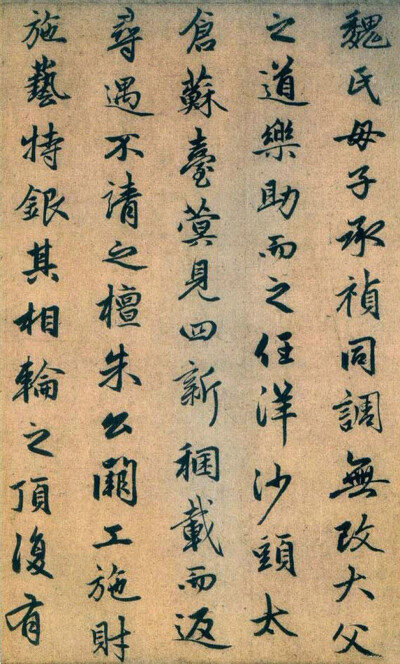 魏氏母子承禎同調無改大父
之道樂助而之任洋沙頭太
倉蘇臺蓂見四新稇載而返
尋遇不請之檀朱公闢工施財
施藝特銀其相輪之頂復有